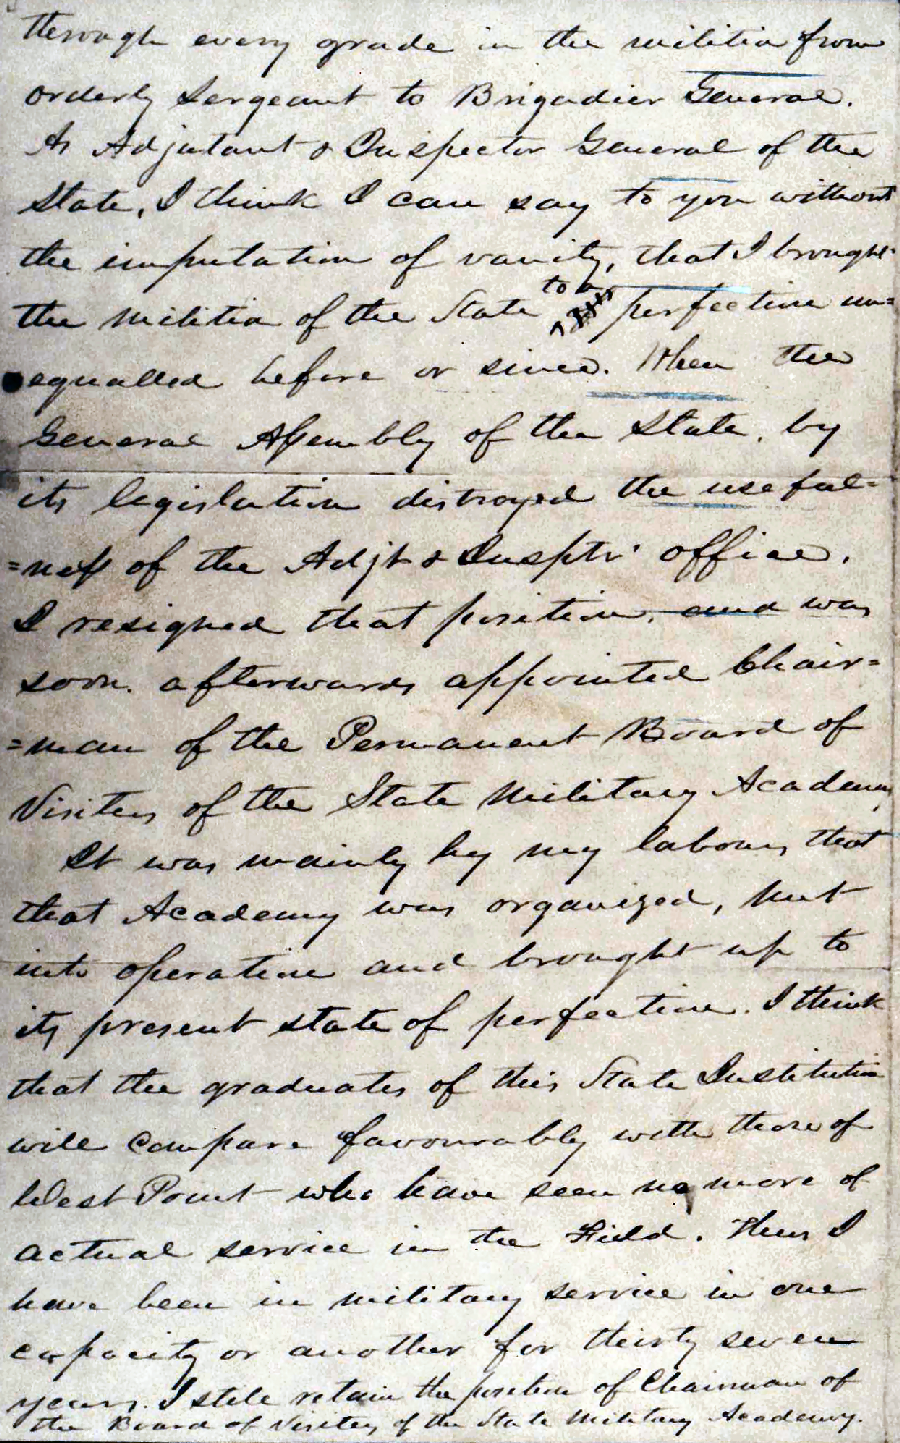 through every grade in the militia from
orderly Sergeant to Brigadier General.
As Adjutant & Inspector General of the
State, I think I can say to you without
the imputation of vanity, that I brought
the militia of the State to a perfection un=
equalled before or since. When the
General Assembly of the State, by
its legislation distroyed the useful=
=ness of the Adjt & Insptr. office.
I resigned that position, and was
soon afterwards appointed Chair=
=man of the Permanent Board of
Visiters of the State Military Academy
It was mainly by my labours that
that Academy was organized, put
into operation and brought up to
its present state of perfection. I think
that the graduates of this State Institution
will compare favourably with those of
West Point who have seen no more of
actual service in the Field. Thus I
have been in military service in one
capacity or another for thirty seven
years. I still retain the position of Chairman of
the Board of Visiters of the State Military Academy.